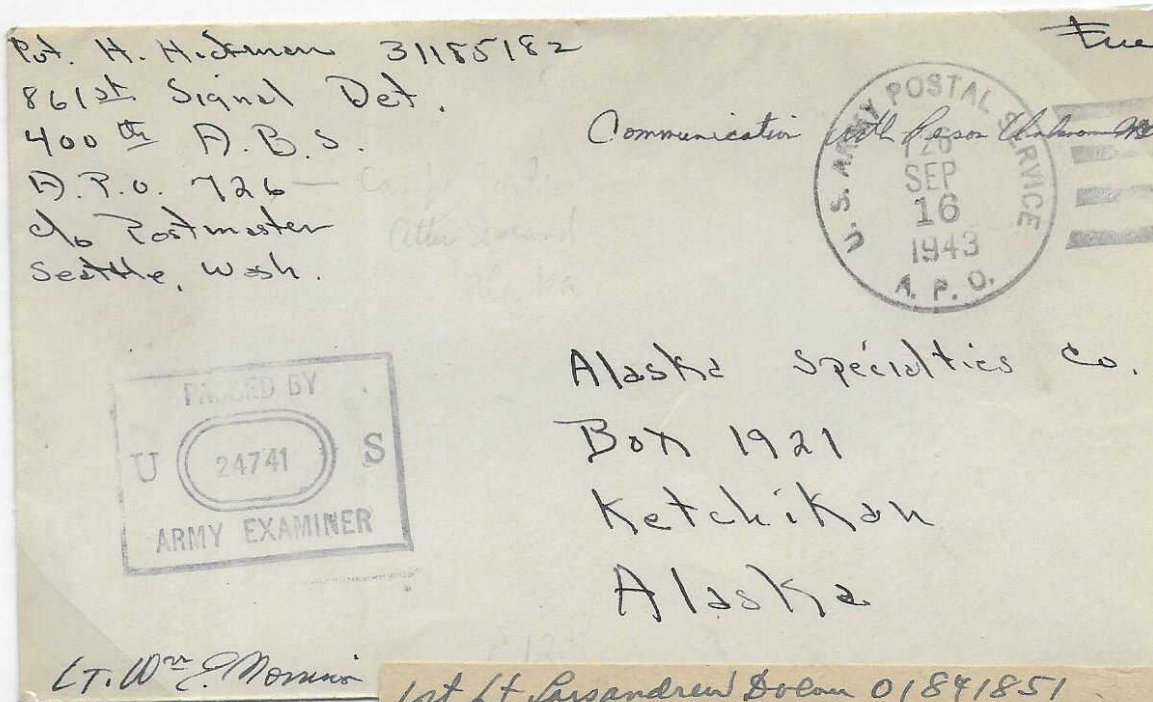 Pvt. H. Hickman 31185182
861st Signal Det.
400th A.B.S.
A.P.O. 726 —
c/o Postmaster
Seattle, Wash.
Free
Communication with Person Unknown
U.S. ARMY POSTAL SERVICE
726
SEP
16
1943
A. P. O.
PASSED BY
U 24741 S
ARMY EXAMINER
Alaska Specialties Co.
Box 1921
Ketchikan
Alaska
LT. Wm E.
1st Lt. Dolan 01841851